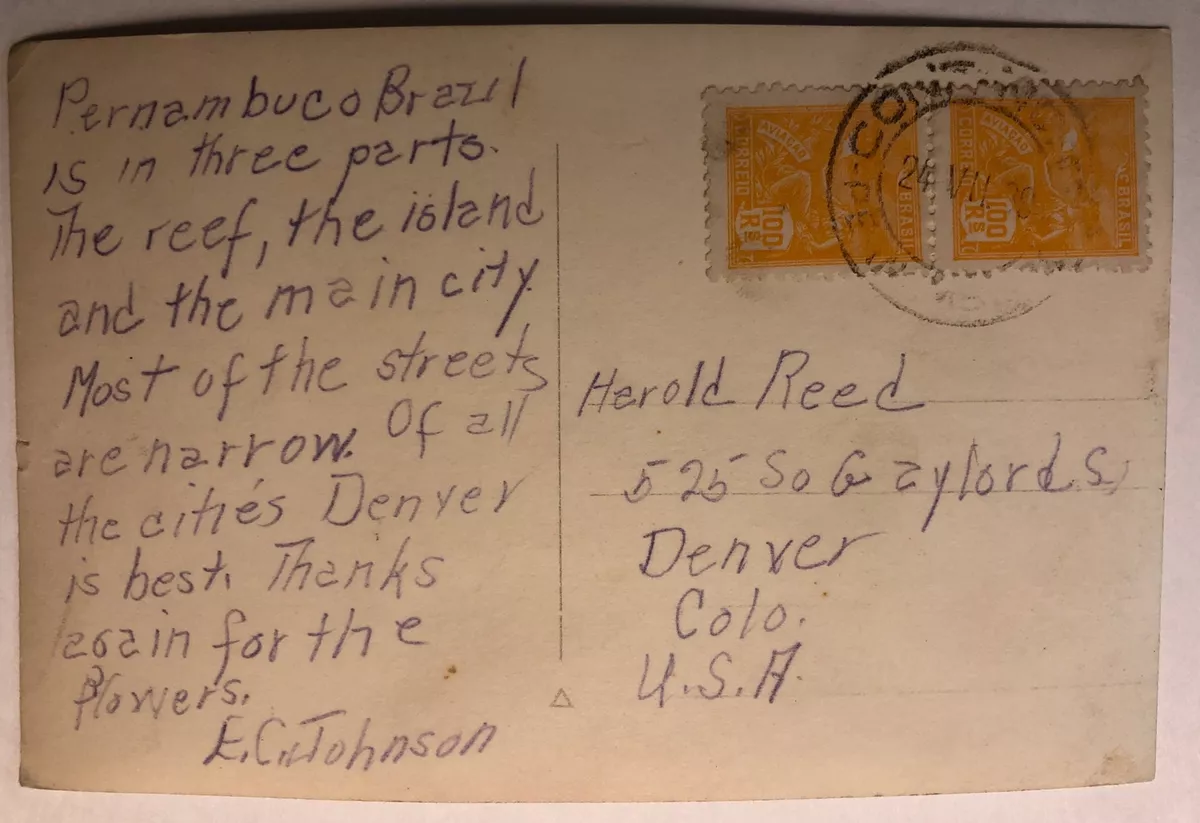 Pernambuco Brazil
is in three parts.
The reef, the island
and the main city.
Most of the streets
are narrow. Of all
the cities Denver
is best. Thanks
again for the
flowers.
E.C. Johnson
CORREIO
AVIAÇÃO
100
RIS
BRASIL
CORREIO
AVIAÇÃO
100
RIS
BRASIL
24 VII
Harold Reed
525 So Gaylord S
Denver
Colo.
U.S.A.